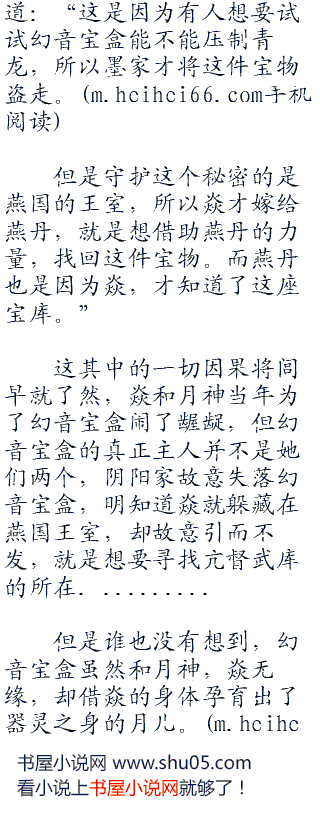 道：“这是因为有人想要试
试幻音宝盒能不能压制青
龙，所以墨家才将这件宝物
盗走。(m.hcihci66.com手机
阅读)
但是守护这个秘密的是
燕国的王室，所以焱才嫁给
燕丹，就是想借助燕丹的力
量，找回这件宝物。而燕丹
也是因为焱，才知道了这座
宝库。”
这其中的一切因果将闾
早就了然，焱和月神当年为
了幻音宝盒闹了龌龊，但幻
音宝盒的真正主人并不是她
们两个，阴阳家故意失落幻
音宝盒，明知道焱就躲藏在
燕国王室，却故意引而不
发，就是想要寻找亢督武库
的所在. .........
但是谁也没有想到，幻
音宝盒虽然和月神，焱无
缘，却借焱的身体孕育出了
器灵之身的月儿。(m.hcihc
书屋小说网 www.shu05.com
看小说上书屋小说网就够了！